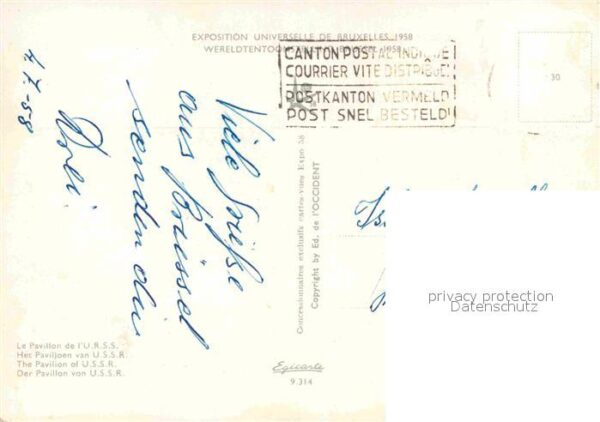 EXPOSITION UNIVERSELLE DE BRUXELLES 1958
CANTON POSTAL INDIQUÉ
COURRIER VITE DISTRIBUÉ
POSTKANTON VERMELD
POST SNEL BESTELD!
30
4-7-58
Viele Grüße
aus Brüssel
senden dir
Concessionnaires exclusifs cartes-vues Expo 58
Copyright by Ed. de l'OCCIDENT
privacy protection
Datenschutz
Le Pavillon de l'U.R.S.S.
Het Paviljoen van U.S.S.R.
The Pavilion of U.S.S.R.
Der Pavillon von U.S.S.R.
Egicarte
9.314